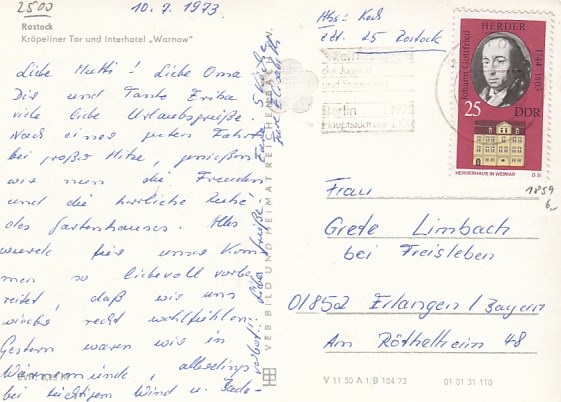 2500
10.7.1973
Rostock
Kröpeliner Tor und Interhotel „Warnow"
Liebe Mutti! Liebe Oma!
Dir und Tante Erika
viele liebe Urlaubsgrüße.
Nach einer guten Fahrt
bei großer Hitze, genießen
wir nun die Freuden
und die herrliche Ruhe
des Gartenhauses. Alles
wurde für unser Kom
men so liebevoll vorbe
reitet, daß wir uns
wieder recht wohlfühlen.
Gestern waren wir in
Warnemünde, allerdings
bei tüchtigem Wind u. Bade-
verbot!! Liebe Grüße
VEB BILD UND HEIMAT REICHENBACH
Abs: Koch
z.Zt. 25 Rostock
der Jugend
und
Berlin
Hauptstadt der DDR
Johann Gottfried
HERDER
1744 1803
25
DDR
HERDERHAUS IN WEIMAR
1859
6,-
Frau
Grete Limbach
bei Freisleben
01852 Erlangen / Bayern
Am Röthelheim 48
V 11 50 A 1 B 104/73
01 01 31 110